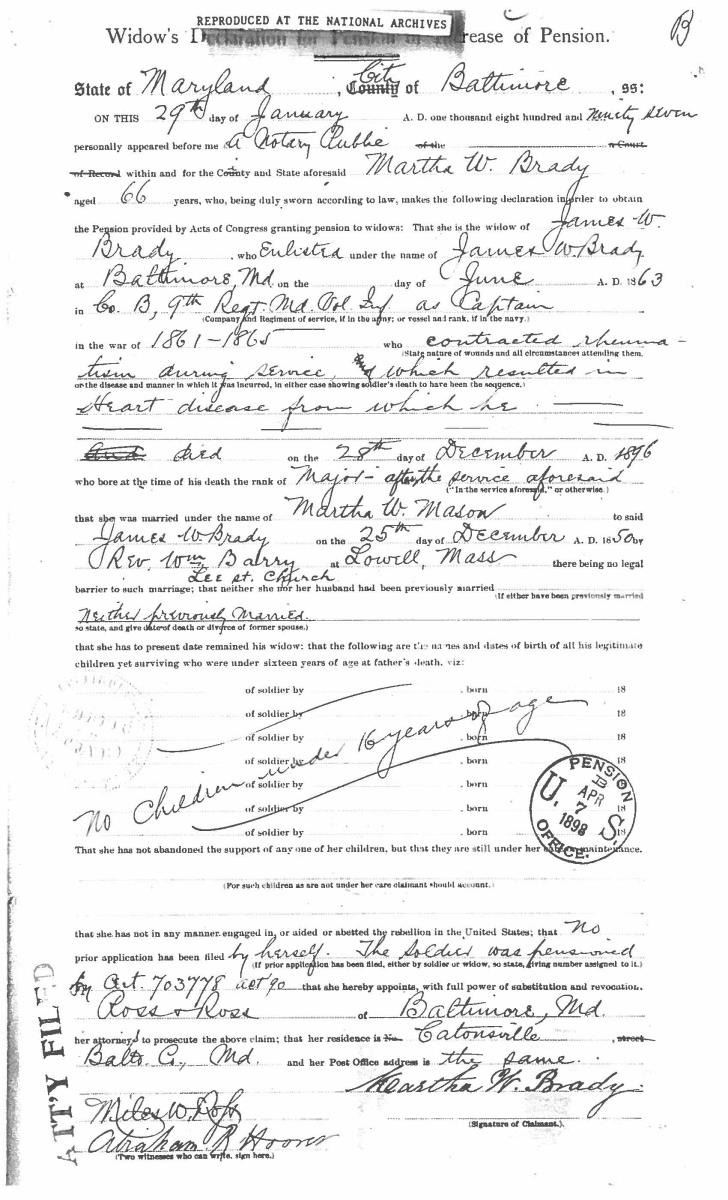 REPRODUCED AT THE NATIONAL ARCHIVES
B
Widow's Declaration for Pension or Increase of Pension.
State of Maryland, City County of Baltimore, ss:
ON THIS 29th day of January A. D. one thousand eight hundred and ninety seven
personally appeared before me a Notary Public of the a Court
of Record within and for the County and State aforesaid Martha W. Brady
aged 66 years, who, being duly sworn according to law, makes the following declaration in order to obtain
the Pension provided by Acts of Congress granting pension to widows: That she is the widow of James W.
Brady, who Enlisted under the name of James W Brady
at Baltimore, Md. on the day of June A. D. 1863
in Co. B, 9th Regt. Md. Vol. Inf. as Captain
(Company and Regiment of service, if in the army; or vessel and rank, if in the navy.)
in the war of 1861-1865 who contracted rheuma-
(State nature of wounds and all circumstances attending them,
tism during service, which resulted in
or the disease and manner in which it was incurred, in either case showing soldier's death to have been the sequence.)
Heart disease from which he
died on the 28th day of December A. D. 1896
who bore at the time of his death the rank of Major - after the service aforesaid
("In the service aforesaid," or otherwise.)
that she was married under the name of Martha W. Mason to said
James W Brady on the 25th day of December A. D. 1850 by
Rev. Wm Barry at Lowell, Mass there being no legal
Lee st. Church
barrier to such marriage; that neither she nor her husband had been previously married
(If either have been previously married
Neither previously Married.
so state, and give date of death or divorce of former spouse.)
that she has to present date remained his widow: that the following are the names and dates of birth of all his legitimate
children yet surviving who were under sixteen years of age at father's death, viz:
of soldier by , born 18
of soldier by , born 18
of soldier by , born 18
of soldier by , born 18
of soldier by , born 18
of soldier by , born 18
of soldier by , born 18
No Children under 16 years of age
PENSION OFFICE.
U. S.
B
APR
7
1898
That she has not abandoned the support of any one of her children, but that they are still under her maintenance.
(For such children as are not under her care claimant should account.)
that she has not in any manner engaged in, or aided or abetted the rebellion in the United States; that No
prior application has been filed by herself. The soldier was pensioned
(If prior application has been filed, either by soldier or widow, so state, giving number assigned to it.)
by Crt. 703778 act 90 that she hereby appoints, with full power of substitution and revocation,
Ross & Ross of Baltimore, Md.
her attorney to prosecute the above claim; that her residence is No. Catonsville, street
Balto. Co., Md. and her Post Office address is the same.
Martha W. Brady
(Signature of Claimant.)
Miles W. Ross
Abraham R Hoover
(Two witnesses who can write, sign here.)
ATT'Y FILED